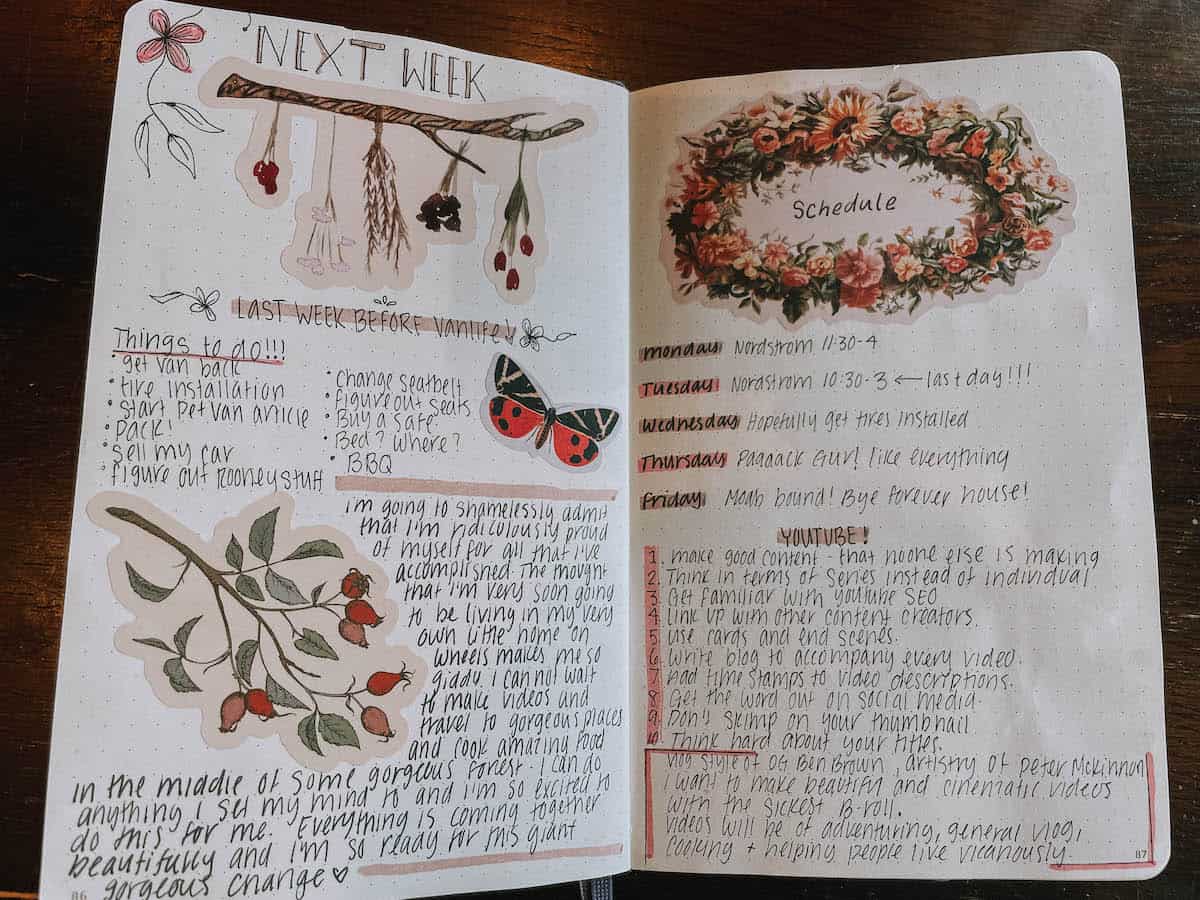 NEXT WEEK
LAST WEEK BEFORE Vanlife!
Things to do!!!
• get van back
• tire installation
• Start Pet van article
• Pack!
• Sell my car
• figure out Rooney stuff
• Change Seatbelt
• Figure out Seats
• Buy a Safe
• Bed? Where?
• BBQ
i'm going to shamelessly admit
that I'm ridicolously proud
of myself for all that I've
accomplished. The thought
that I'm very soon going
to be living in my very
own little home on
wheels makes me so
giddy. I cannot wait
to make videos and
travel to gorgeous places
and cook amazing food
in the middle of some gorgeous forest. I can do
anything I set my mind to and i'm so excited to
do this for me. Everything is coming together
beautifully and I'm so ready for this giant
gorgeous change ♡
86
Schedule
monday Nordstrom 11:30-4
Tuesday Nordstrom 10:30-3 ← last day!!!
Wednesday Hopefully get tires installed
Thursday Paaaack Gurl like everything
Friday Moab bound! Bye forever house!
YOUTUBE!
1. make good content - that noone else is making
2. Think in terms of Series instead of individual
3. Get familiar with youtube SEO
4. Link up with other content creators.
5. use cards and end scenes.
6. Write blog to accompany every video.
7. Add time stamps to video descriptions.
8. Get the word out on social media.
9. Don't Skimp on your thumbnail
10. Think hard about your titles.
Vlog Style of OG Ben Brown, artistry of Peter Mckinnon
I want to make beautiful and cinematic videos
with the Sickest B-roll.
videos will be of adventuring, general vlog,
cooking + helping people live vicariously.
87